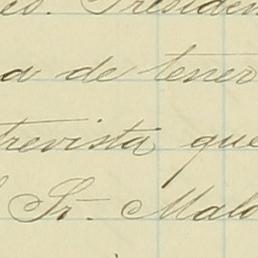 eo. Presiden
a de tener
trevista que
l Sr. Malo